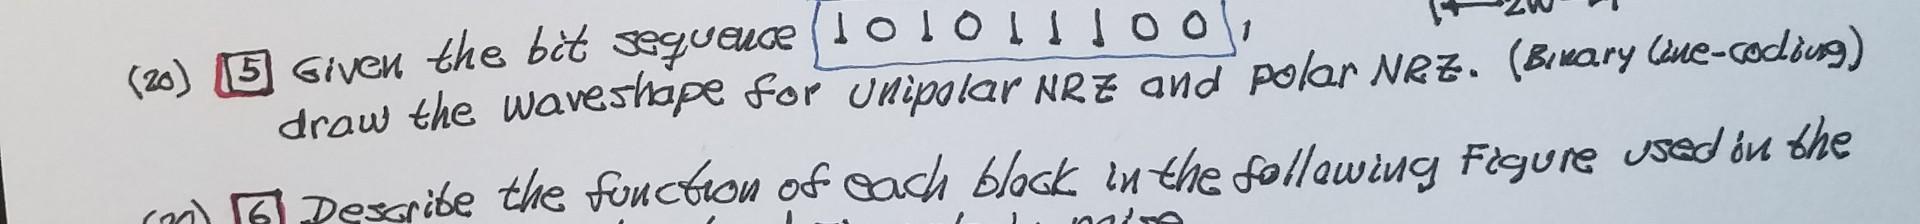 (20) 5 Given the bit sequence 101011100,
draw the waveshape for unipolar NRZ and polar NRZ. (Binary line-coding)
6 Describe the function of each block in the following Figure used in the